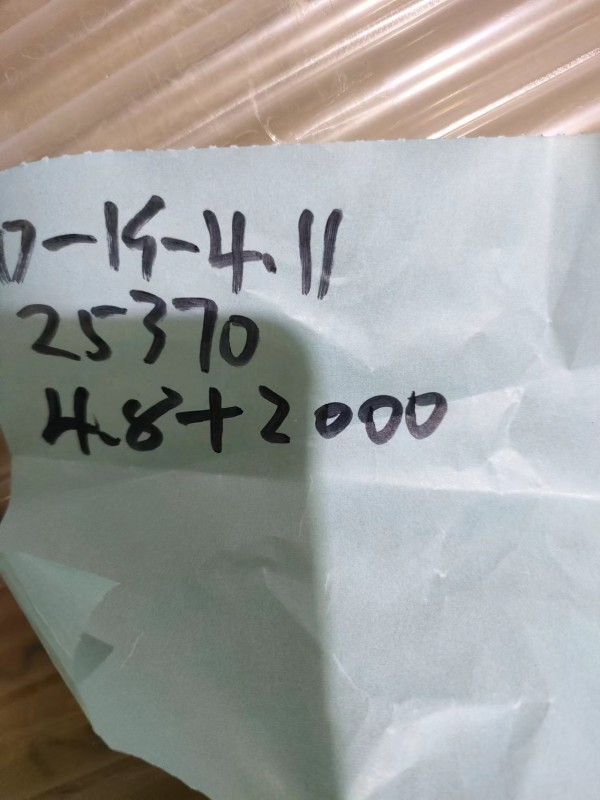 0-15-4.11
25370
4.8+2000